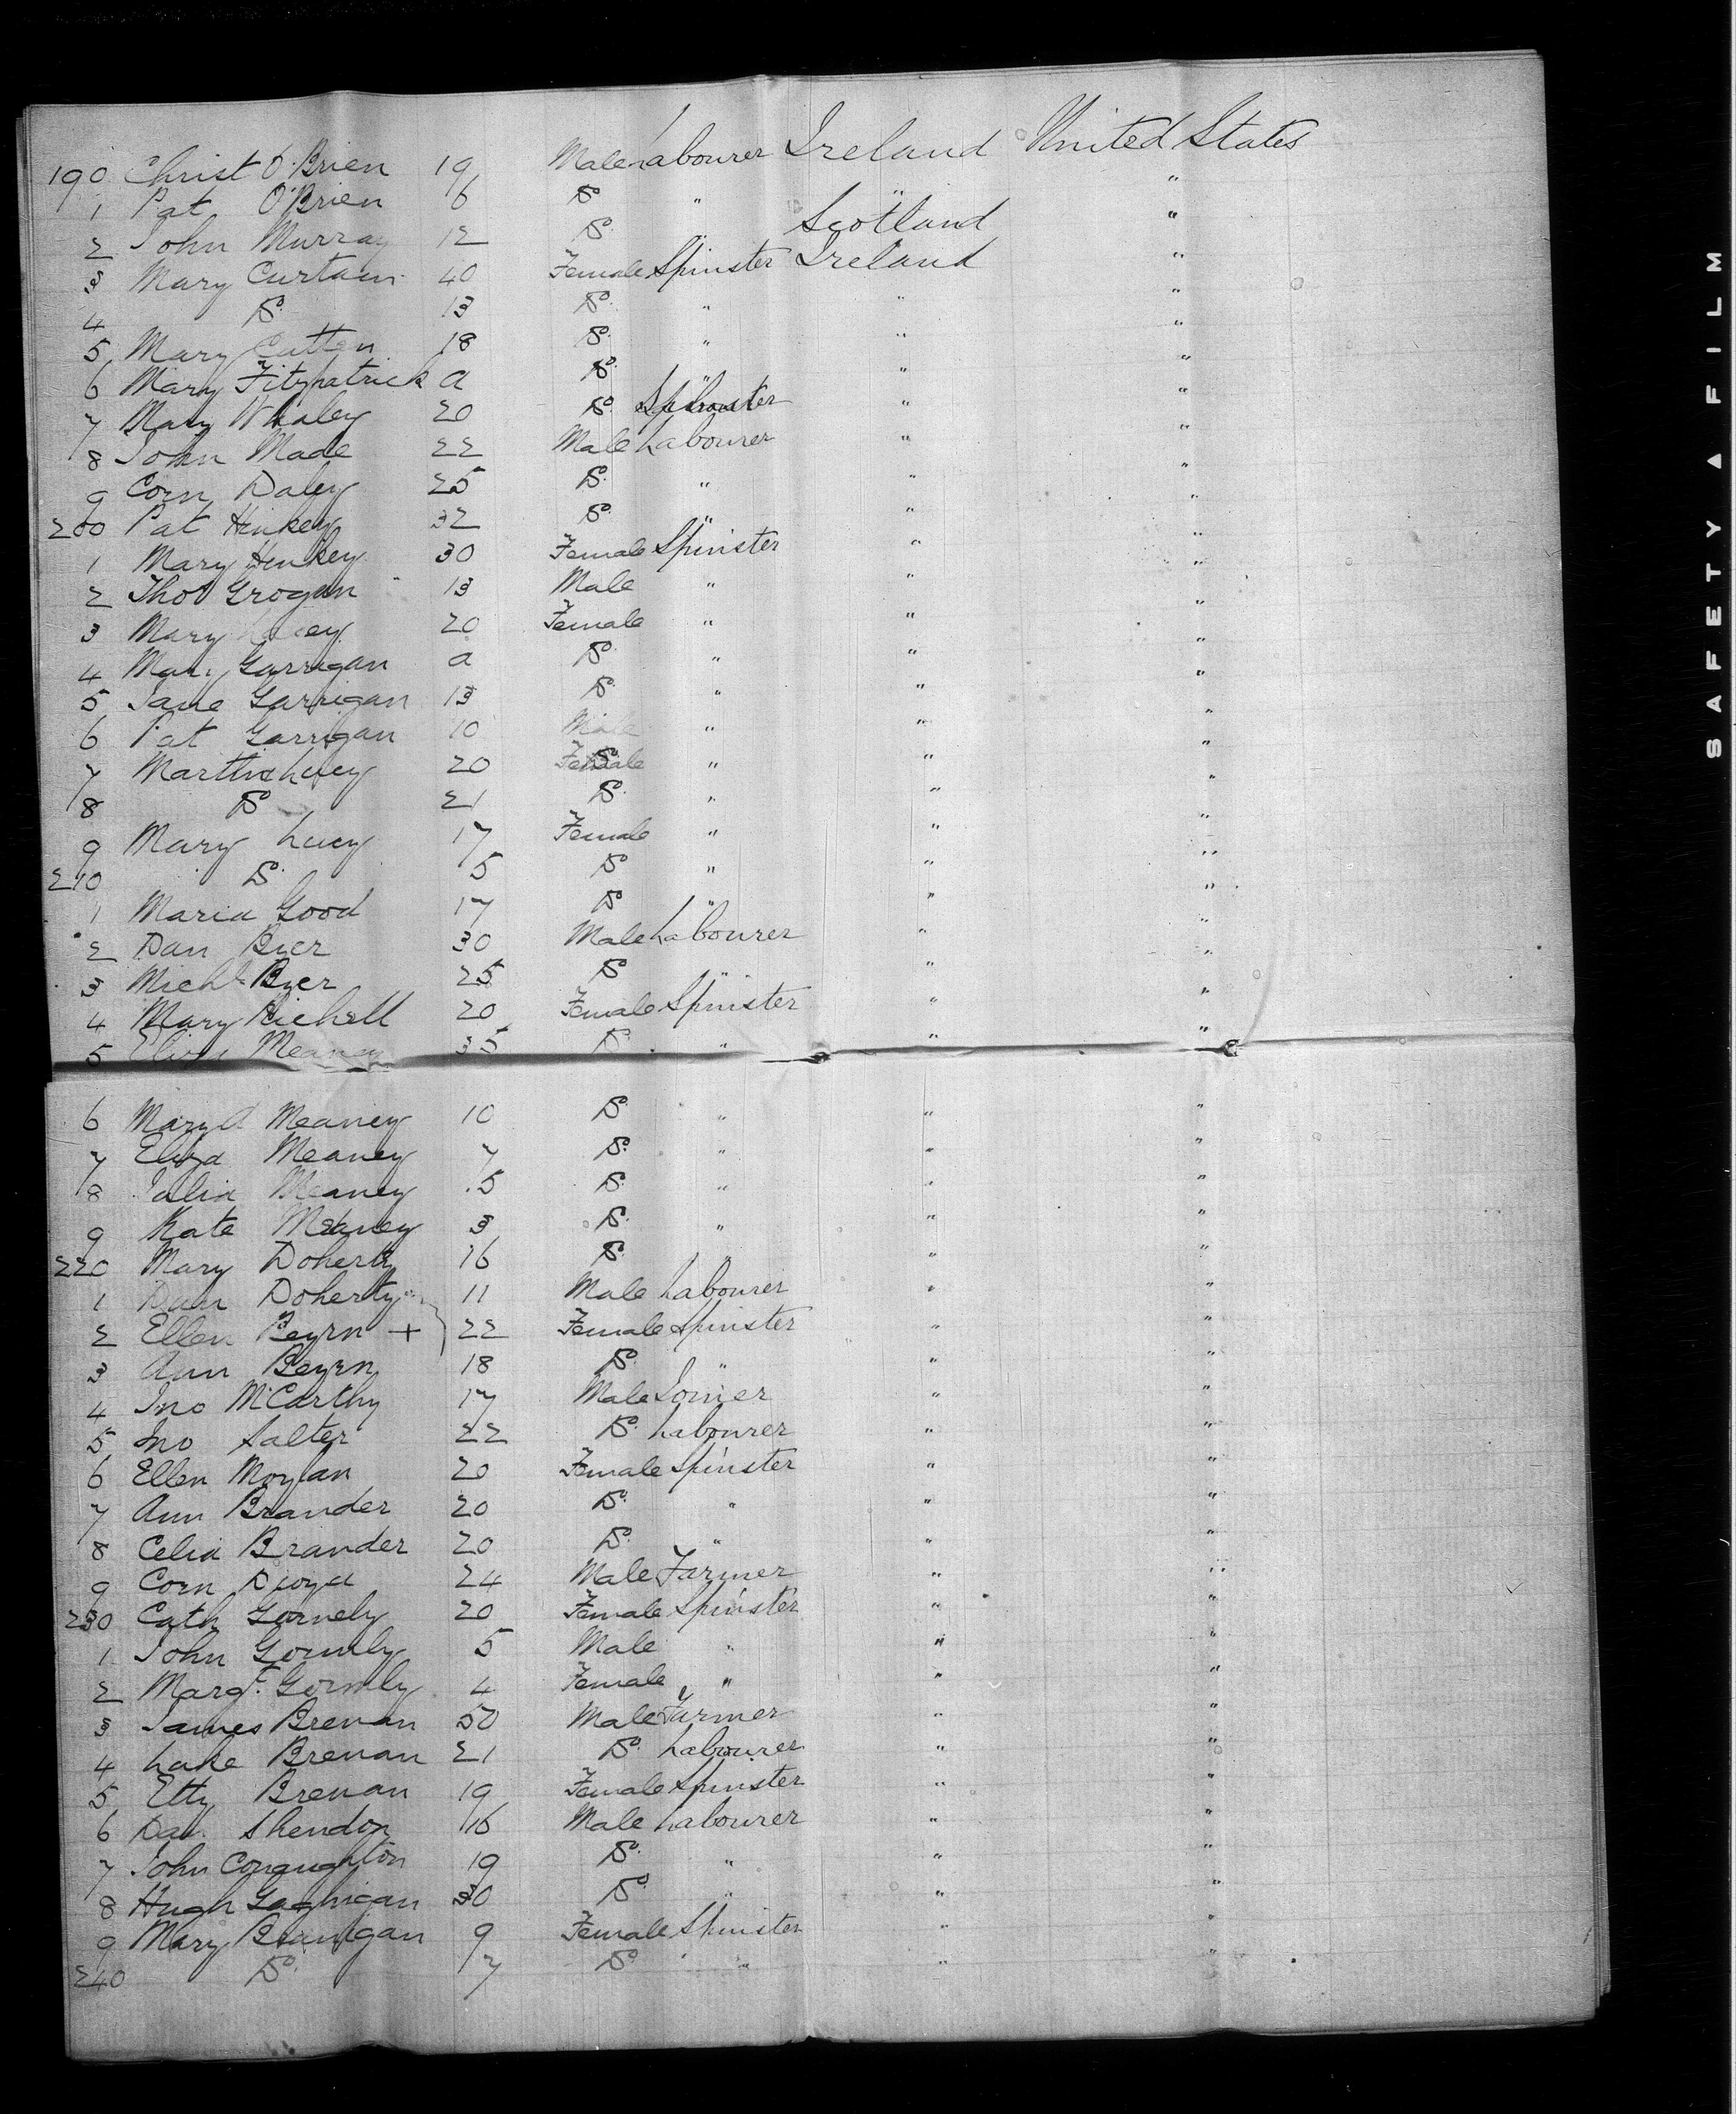 190 Christ O'Brien 19 Male Labourer Ireland United States
1 Pat O'Brien 6 Do " " "
2 John Murray 12 Do " Scotland "
3 Mary Curtain 40 Female Spinster Ireland "
4 Do 13 Do " " "
5 Mary Cutten 18 Do " " "
6 Mary Fitzpatrick a Do " " "
7 Mary Whaley 20 Do Spinster " "
8 John Made 22 Male Labourer " "
9 Corn Daley 25 Do " " "
200 Pat Hinkey 32 Do " " "
1 Mary Hinkey 30 Female Spinster " "
2 Thos Grogan 13 Male " " "
3 Mary 20 Female " " "
4 Mary Garrigan a Do " " "
5 Jane Garrigan 13 Do " " "
6 Pat Garrigan 10 Male " " "
7 20 " " "
8 Do 21 Do " " "
9 Mary Lucy 17 Female " " "
210 Do 5 Do " " "
1 Maria Good 17 Do " " "
2 Dan Byer 30 Male Labourer " "
3 Michl Byer 25 Do " " "
4 Mary Richell 20 Female Spinster " "
5 Eliza Meaney 35 Do " " "
6 Mary A Meaney 10 Do " " "
7 Eliza Meaney 7 Do " " "
8 Julia Meaney 5 Do " " "
9 Kate Meaney 3 Do " " "
220 Mary Doherty 16 Do " " "
1 Dan Doherty 11 Male Labourer " "
2 Ellen Beyrn + 22 Female Spinster " "
3 Ann Beyrn 18 Do " " "
4 Jno McCarthy 17 Male Joiner " "
5 Jno Salter 22 Do Labourer " "
6 Ellen Moylan 20 Female Spinster " "
7 Ann Brander 20 Do " " "
8 Celia Brander 20 Do " " "
9 Corn 24 Male Farmer " "
230 Cath Gormely 20 Female Spinster " "
1 John Gormly 5 Male " " "
2 Margt. Gormly 4 Female " " "
3 James Brenan 50 Male Farmer " "
4 Luke Brenan 21 Do Labourer " "
5 Etty Brenan 19 Female Spinster " "
6 Dan. Shendon 16 Male Labourer " "
7 John Conaughton 19 Do " " "
8 Hugh Gaghigan 30 Do " " "
9 Mary Branigan 9 Female Spinster " "
240 Do 7 Do " " "
SAFETY ▲ FILM